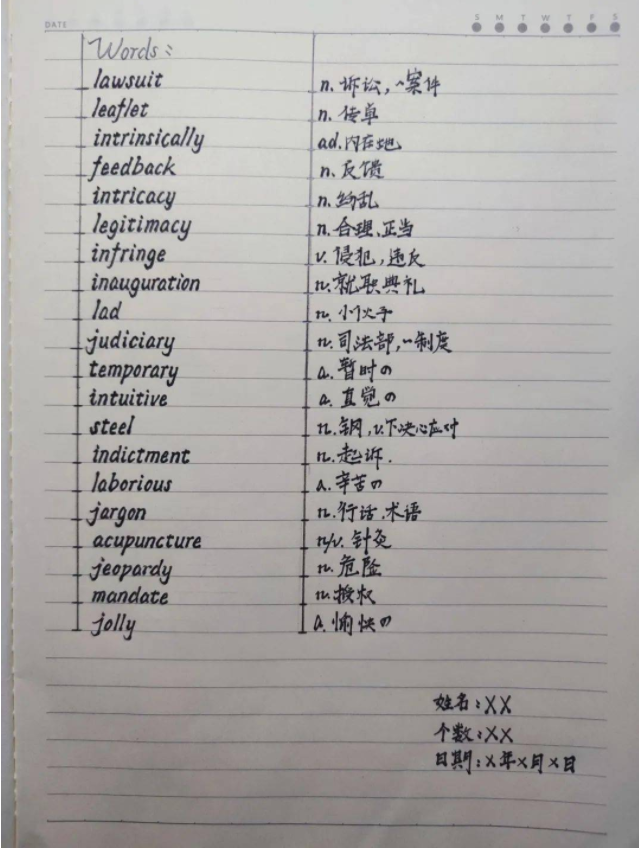 DATE S M T W T F S
Words:
lawsuit n. 诉讼, ~案件
leaflet n. 传单
intrinsically ad. 内在地
feedback n. 反馈
intricacy n. 纷乱
legitimacy n. 合理、正当
infringe v. 侵犯, 违反
inauguration n. 就职典礼
lad n. 小伙子
judiciary n. 司法部, ~制度
temporary a. 暂时の
intuitive a. 直觉の
steel n. 钢, v. 下决心应对
indictment n. 起诉.
laborious a. 辛苦の
jargon n. 行话. 术语
acupuncture n/v. 针灸
jeopardy n. 危险
mandate n. 授权
jolly a. 愉快の
姓名: XX
个数: XX
日期: X年X月X日